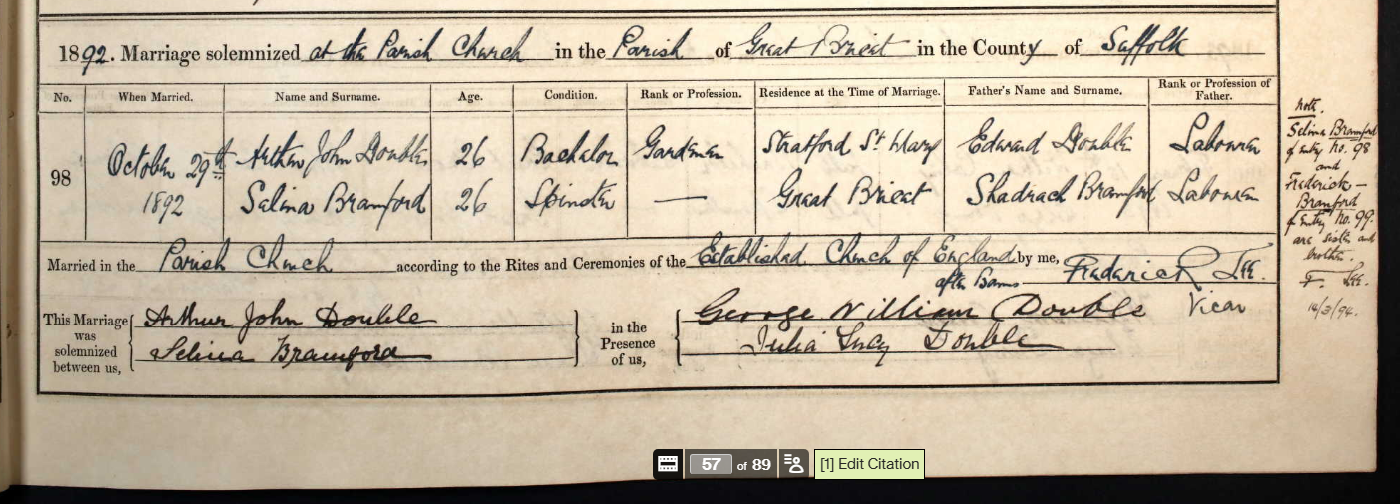 1892. Marriage solemnized at the Parish Church in the Parish of Great Bricet in the County of Suffolk
No. When Married. Name and Surname. Age. Condition. Rank or Profession. Residence at the Time of Marriage. Father's Name and Surname. Rank or Profession of Father.
98 October 29th 1892 Arthur John Double 26 Bachelor Gardener Stratford St Mary Edward Double Labourer
Selina Bramford 26 Spinster — Great Bricet Shadrach Bramford Labourer
Married in the Parish Church according to the Rites and Ceremonies of the Established Church of England by me,
after Banns Frederick Lee.
Vicar
This Marriage was solemnized between us, Arthur John Double
Selina Bramford
in the Presence of us, George William Double
Julia Lucy Double
note.
Selina Bramford
of entry No. 98
and
Frederick
Bramford
of entry No. 99.
are sister and
brother.
F. Lee.
14/3/94.
57 of 89 [1] Edit Citation